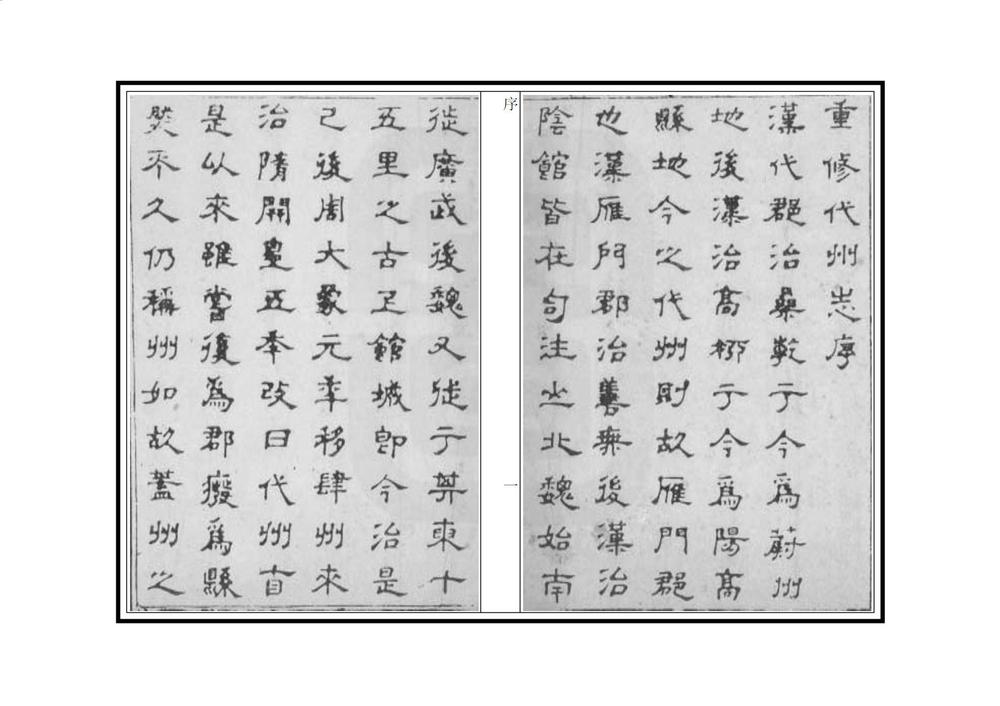 重修代州志序
漢代郡治桑乾于今爲蔚州
地後漢治高柳于今爲陽高
縣地今之代州則故雁門郡
也漢雁門郡治善無後漢治
陰館皆在句注之北魏始南
序
一
徙廣武後魏又徙于其東十
五里之古上館城即今治是
已後周大象元年移肆州來
治隋開皇五年改曰代州自
是以來雖嘗復爲郡廢爲縣
然不久仍稱州如故蓋州之